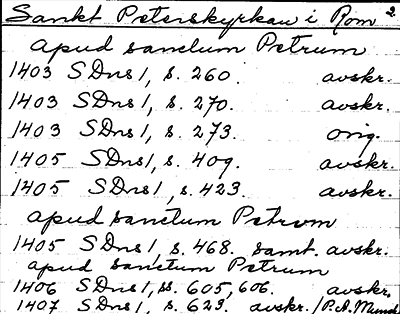 Sankt Peterskyrkan i Rom 2.
apud sanctum Petrum
1403 SDns 1, s. 260. avskr.
1403 SDns 1, s. 270. avskr.
1403 SDns 1, s. 273. orig.
1405 SDns 1, s. 409. avskr.
1405 SDns 1, s. 423. avskr.
apud sanctum Petrum
1405 SDns 1, s. 468. samt. avskr.
apud sanctum Petrum
1406 SDns 1, ss. 605, 606. avskr.
1407 SDns 1, s. 623. avskr. /P.A. Munch